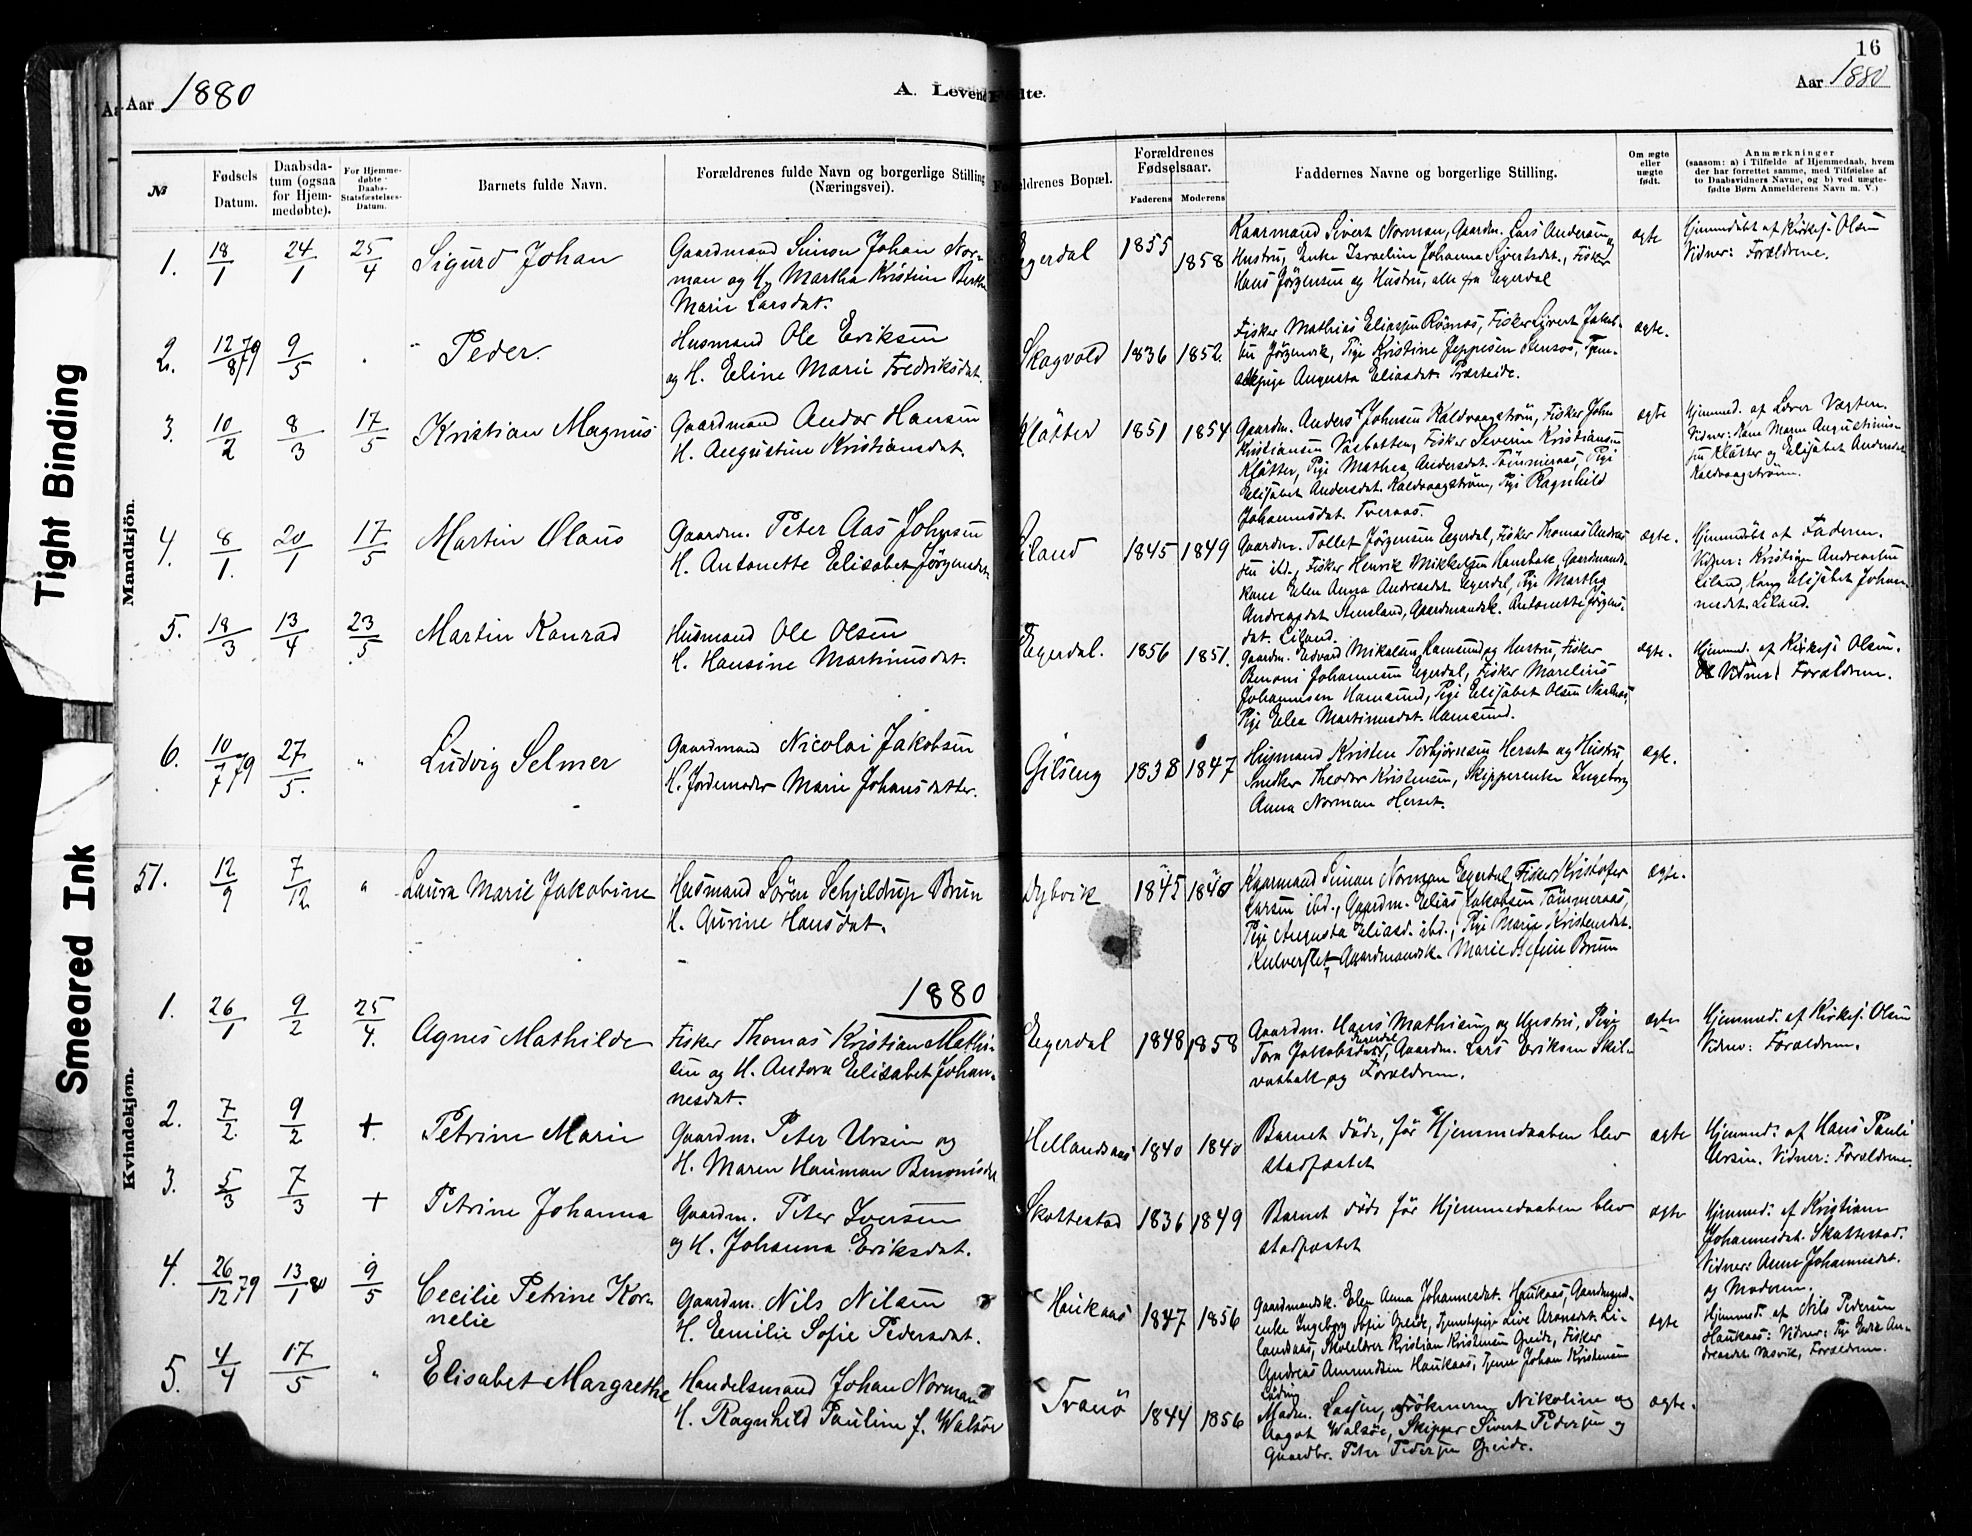 16
Aar 1880
A. Levende Fødte.
Aar 1880
Tight Binding
Smeared Ink
Mandkjön.
Kvindekjøn.
№
Fødsels Datum.
Daabsdatum (ogsaa for Hjemmedøbte).
For Hjemmedøbte Daabs-Statsfæstelses-Datum.
Barnets fulde Navn.
Forældrenes fulde Navn og borgerlige Stilling (Næringsvei).
Forældrenes Bopæl.
Forældrenes Fødselsaar.
Faderens
Moderens
Faddernes Navne og borgerlige Stilling.
Om ægte eller uægte født.
Anmærkninger
(saasom: a) i Tilfælde af Hjemmedaab, hvem der har forrettet samme, med Tilføielse af to Daabsvidners Navne, og b) ved uægte-fødte Børn Anmelderens Navn m. V.)
1. 18/1 24/1 25/4 Sigurd Johan
Gaardmand Simon Johan Nor-
man og H. Martha Kristine
Marie Larsdat.
Egerdal 1855 1858
Kaarmand Sivert Norman, Gaardm. Lars Andersen og
Hustru, Enke Israeline Johanna Sivertsdat., Fisker
Hans Jörgensen og Hustru, alle fra Egerdal
ægte
Hjemmedöbt af Kirkesj. Olsen
Vidner: Forældrene.
2. 12/8 79 9/5 Peder.
Husmand Ole Eriksen
og H. Eline Marie Fredriksdat.
Skagvold 1836 1852.
Fisker Mathias Eliassen Rönaas, Fisker Sivert Jakob-
sen Jörgenvik, Pige Kristine Jeppesen Stensos, Tjene-
stepige Augusta Eliasdat. Præsteide.
ægte.
3. 10/2 8/3 17/5 Kristian Magnus
Gaardmand Andor Hansen
H. Augustine Kristiansdat.
Kløtter 1851 1854
Gaardm. Anders Johnsen Kaldvaagström, Fisker John
Kristiansen Vasbotten, Fisker Severin Kristiansen
Kløtter, Pige Mathea Andersdat. Tömmeraas, Pige
Elisabet Andersdat. Kaldvaagström, Pige Ragnhild
Johannesdat. Tveraas.
ægte
Hjemmed. af Lærer Vagten.
Vidner: Kone Maren Augustinus-
sen Kløtter og Elisabet Andersdat.
Kaldvaagström.
4. 8/1. 20/1 17/5 Martin Olaus
Gaardm. Peter Aas Johnsen
H. Antonette Elisabet Jörgensdat.
Liland 1845 1849
Gaardm. Tollef Jörgensen Egerdal, Fisker Thomas Andrea-
sen ibd., Fisker Henrik Mikkelsen Hansbak, Gaardmands-
kone Elen Anna Andreasdat. Egerdal, Pige Marthe
Andreasdat. Stensland, Gaardmandsk. Antonette Jörgens-
dat. Liland.
ægte.
Hjemmedöbt af Faderen.
Vidner: Kristian Andreassen
Liland, Kone Elisabet Johan-
nesdat. Liland.
5. 18/3 13/4 23/5 Martin Konrad
Husmand Ole Olsen
H. Hansine Martinusdat.
Egerdal. 1856 1851.
Gaardm. Edvard Mikalsen Hamsund og Hustru, Fisker
Benoni Johannesen Egerdal, Fisker Marelius
Johannesen Hamsund, Pige Elisabet Olsen
Pige Elea Martinusdat. Hamsund.
ægte.
Hjemmed. af Kirkesj. Olsen.
Vidner: Forældrene.
6. 10/7 79 27/5. " Ludvig Selmer
Gaardmand Nicolai Jakobsen
H. Jordemoder Marie Johansdatter.
Gilseng 1838 1847
Husmand Kristen Torbjörnsen Herset og Hustru,
Snedker Theodor Kristensen, Skipperenke Ingeborg
Anna Norman Herset.
ægte.
51. 12/9 7/12 " Laura Marie Jakobine
Husmand Sören Schjeldrup Brun
H. Gurine Hansdat.
Dybvik 1845 1840
Kaarmand Simon Norman Egerdal, Fisker Kristofer
Larsen ibd., Gaardm. Elias Jakobsen Tömmeraas,
Pige Augusta Eliasd. ibd., Pige Marie Kristensdat.
Gaardmandsk. Marie Brun
ægte.
1880
1. 26/1 9/2 25/4. Agnes Mathilde
Fisker Thomas Kristian Mathi-
sen og H. Antora Elisabet Johan-
nesdat.
Egerdal 1848 1858
Gaardm. Hans Mathisen og Hustru, Pige
Tora Jakobsdat. Egerdal, Gaardm. Lars Eriksen Skil-
vasbak og Forældrene.
ægte
Hjemmed. af Kirkesj. Olsen
Vidner: Forældrene.
2. 7/2 9/2 + Petrine Marie
Gaardm. Peter Ursin og
H. Maren Hanman Benonisdat.
Hellandsaas 1840 1840
Barnet döde, för Hjemmedaaben blev
stadfæstet
ægte
Hjemmed. af Hans Pauli
Ursin. Vidner: Forældrene.
3. 5/3 7/3 + Petrine Johanna
Gaardm. Peter Iversen
og H. Johanna Eriksdat.
Skottestad 1836 1849
Barnet döde för Hjemmedaaben blev
stadfæstet
ægte
Hjemmed. af Kristiane
Johannesdat. Skottestad.
Vidner: Anne Johannesdat.
og Moderen.
4. 26/12 79 13/1 80 9/5 Cecilie Petrine Kor-
nelie
Gaardm. Nils Nilsen
H. Emilie Sofie Pedersdat.
Haukaas 1847 1856
Gaardmandsk. Elen Anna Johannesdat. Haukaas, Gaardmands-
enke Ingeborg Sofie Greide, Tjenestepige Live Aronsdat. Li-
landsaas, Skolelærer Kristian Kristensen Greide, Fisker
Andreas Amundsen Haukaas, Tjener Johan Kristensen
Löding
ægte
Hjemmed. af Nils Pedersen
Haukaas: Vidner: Pige An-
dreasdat. Vasvik, Forældrene.
5. 4/4 17/5 " Elisabet Margrethe
Handelsmand Johan Norman
H. Ragnhild Pauline f. Walsöe
Tranö 1844 1856
Madm. Lassen, Frökenerne Nikoline og
Aagot Walsöe, Skipper Sivert Pedersen og
Gaardbr. Peter Pedersen Greide.
ægte.